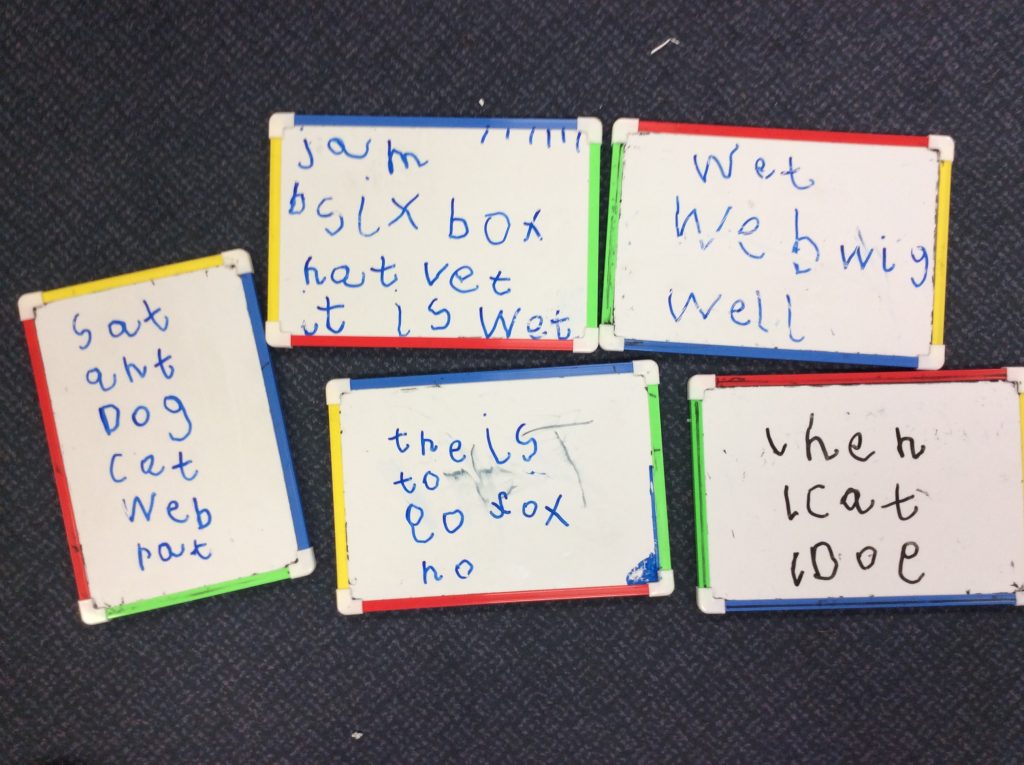 sat
ant
Dog
cat
Web
pat
jam
b six box
hat vet
it is wet
wet
Web wig
Well
the is
to
go fox
no
1hen
1cat
1Dog